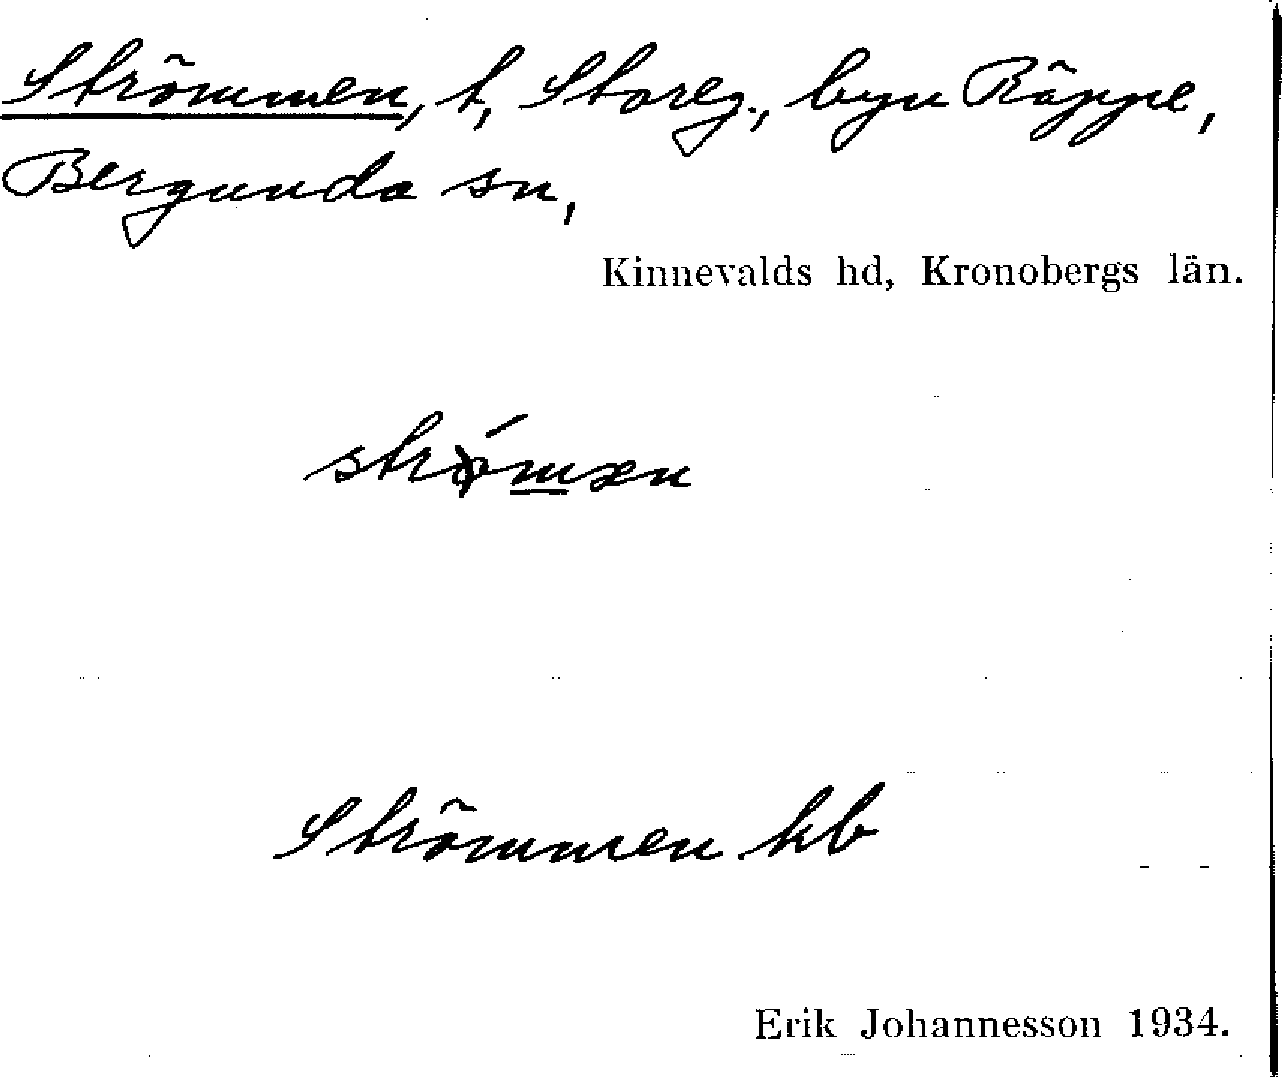 Strömmen, t, Storeg., byn Räppe,
Bergunda sn,
Kinnevalds hd, Kronobergs län.
Strömmen kb
Erik Johannesson 1934.